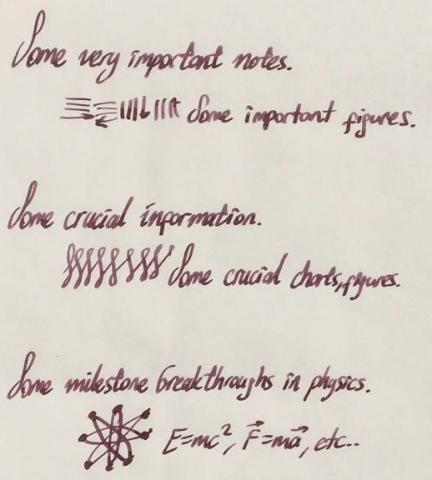 Some very important notes.
Some important figures.
Some crucial information.
Some crucial charts, figures.
Some milestone breakthroughs in physics.
E=mc², F⃗=ma⃗, etc..